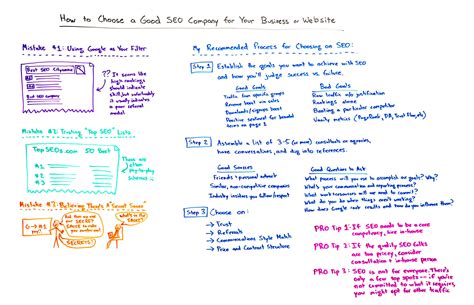 How to Choose a Good SEO Company for Your Business or Website
Mistake #1: Using Google as Your Filter
Best SEO Companies
Best SEO Company
?? It seems like
high rankings
should indicate
skill, but unfortunately
it usually indicates
a poor referral
model.
Mistake #2: Trusting "Top SEO" Lists
TopSEOs.com 50 Best
#1
#2
#3
These are
often
pay-to-play
schemes!
Mistake #3: Believing There's a "Secret Sauce"
SECRET
SAUCE
SECRETS!
what's in the
SAUCE?
My Recommended Process for Choosing an SEO:
Step 1
Establish the goals you want to achieve with SEO
and how you'll judge success vs. failure.
Good Goals
Traffic from specific groups
Revenue boost via sales
Downloads/signups boost
Positive sentiment for branded
terms on page 1
Bad Goals
Raw traffic w/o justification
Rankings alone
Beating a particular competitor
Vanity metrics (PageRank, DA, Trust Flow, etc)
Step 2
Assemble a list of 3-5 (or more) consultants or agencies,
have conversations, and dig into references.
Good Sources
Friends + personal network
Similar, non-competitive companies
Industry insiders you follow/respect
Good Questions to Ask
What process will you use to accomplish our goals? Why?
What's your communication and reporting process?
What work/resources will we need to commit?
What do you do when things aren't working?
How does Google rank results and how do you influence them?
Step 3
Choose on:
Trust
Referrals
Communications Style Match
Price and Contract Structure
PRO Tip 1: If SEO needs to be a core
competency, hire in-house
PRO Tip 2: If the quality SEO folks
are too pricey, consider
consultation + in-house person
PRO Tip 3: SEO is not for everyone. There's
only a few top spots -- if you're
not committed to what it requires,
you might opt for other traffic